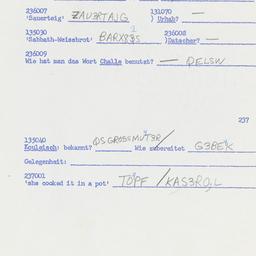 236007 131070
'Sauerteig' ZAU3RTAJG ) Urhab? —
135030 236008
'Sabbath-Weissbrot' BARX8 )Datscher? —
236009
Wie hat man das Wort Challe benutzt? — DELSW
237
135040
Kouleisch: bekannt? DS GROSSMUT3R/ Wie zubereitet G3BEK
Gelegenheit:
237001
'she cooked it in a pot' TOPF /KAS3ROL